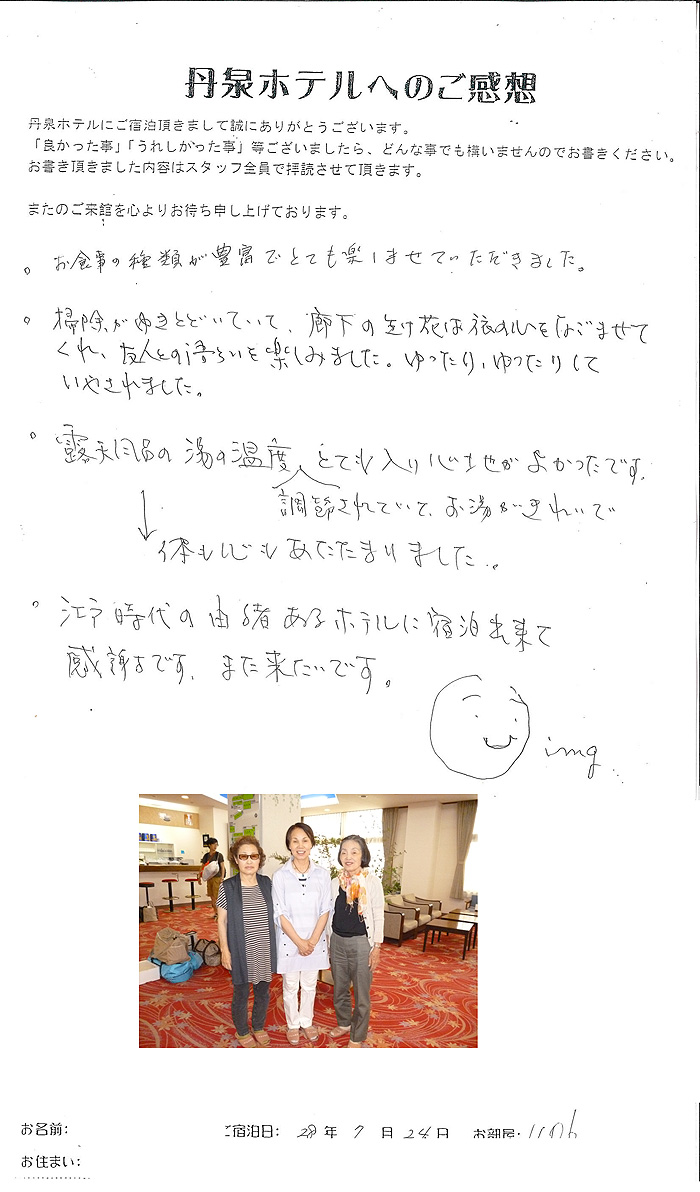 丹泉ホテルへのご感想
丹泉ホテルにご宿泊頂きまして誠にありがとうございます。
「良かった事」「うれしかった事」等ございましたら、どんな事でも構いませんのでお書きください。
お書き頂きました内容はスタッフ全員で拝読させて頂きます。
またのご来館を心よりお待ち申し上げております。
。お食事の種類が豊富でとても楽しませていただきました。
。掃除がゆきとどいていて、廊下の生け花は旅の心をなごませて
くれ、友人との語らいを楽しみました。ゆったり、ゆったりして
いやされました。
。露天風呂の湯の温度、とても入り心地がよかったです。
調節されていて、お湯がきれいで
↓体も心もあたたまりました。
。江戸時代の由緒あるホテルに宿泊出来て
感謝です、また来たいです。
img
お名前: ご宿泊日: 28年7月24日 お部屋: 1106
お住まい: